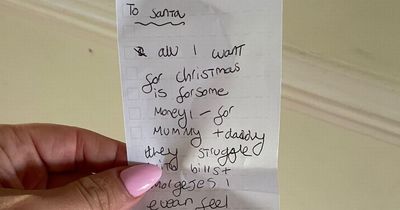 To Santa
all I want
for christmas
is forsome
money! - for
mummy + daddy
they struggle
bills +
morgeses I
evean feel